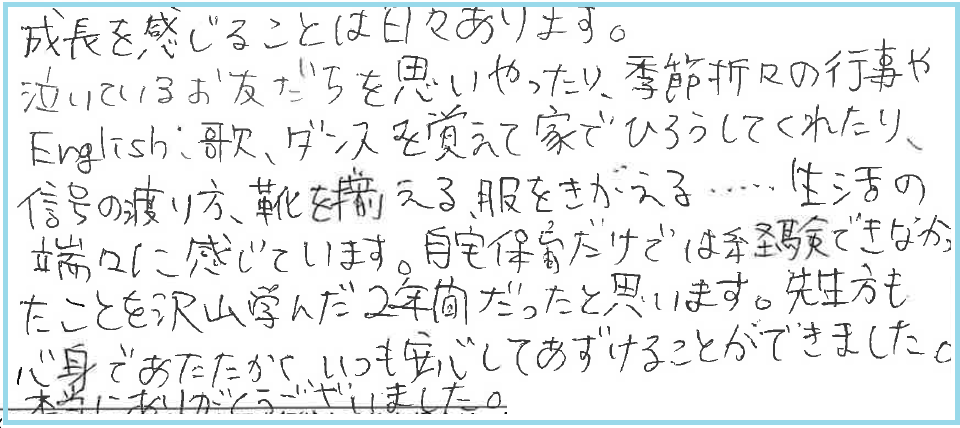 成長を感じることは日々あります。
泣いているお友だちを思いやったり、季節折々の行事や
English、歌、ダンスを覚えて家でひろうしてくれたり、
信号の渡り方、靴を揃える、服をきがえる……生活の
端々に感じています。自宅保育だけでは経験できなかっ
たことを沢山学んだ2年間だったと思います。先生方も
心身であたたかく、いつも安心してあずけることができました。
本当にありがとうございました。